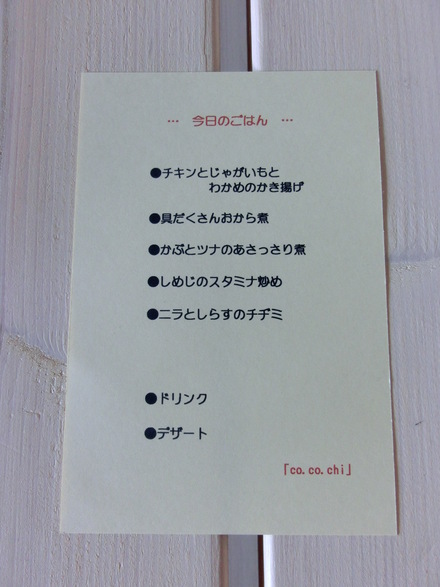 … 今日のごはん …
●チキンとじゃがいもと
わかめのかき揚げ
●具だくさんおから煮
●かぶとツナのあさっさり煮
●しめじのスタミナ炒め
●ニラとしらすのチヂミ
●ドリンク
●デザート
「co.co.chi」